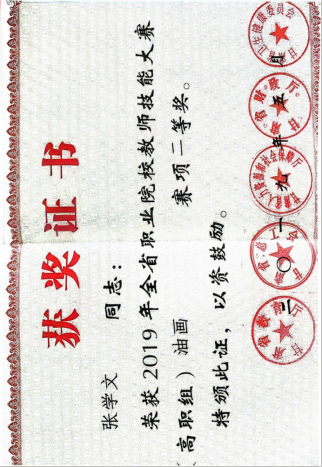 获奖证书
张学文 同志：
荣获2019年全省职业院校教师技能大赛
（高职组）油画 赛项二等奖。
特颁此证，以资鼓励。
二〇一九年五月